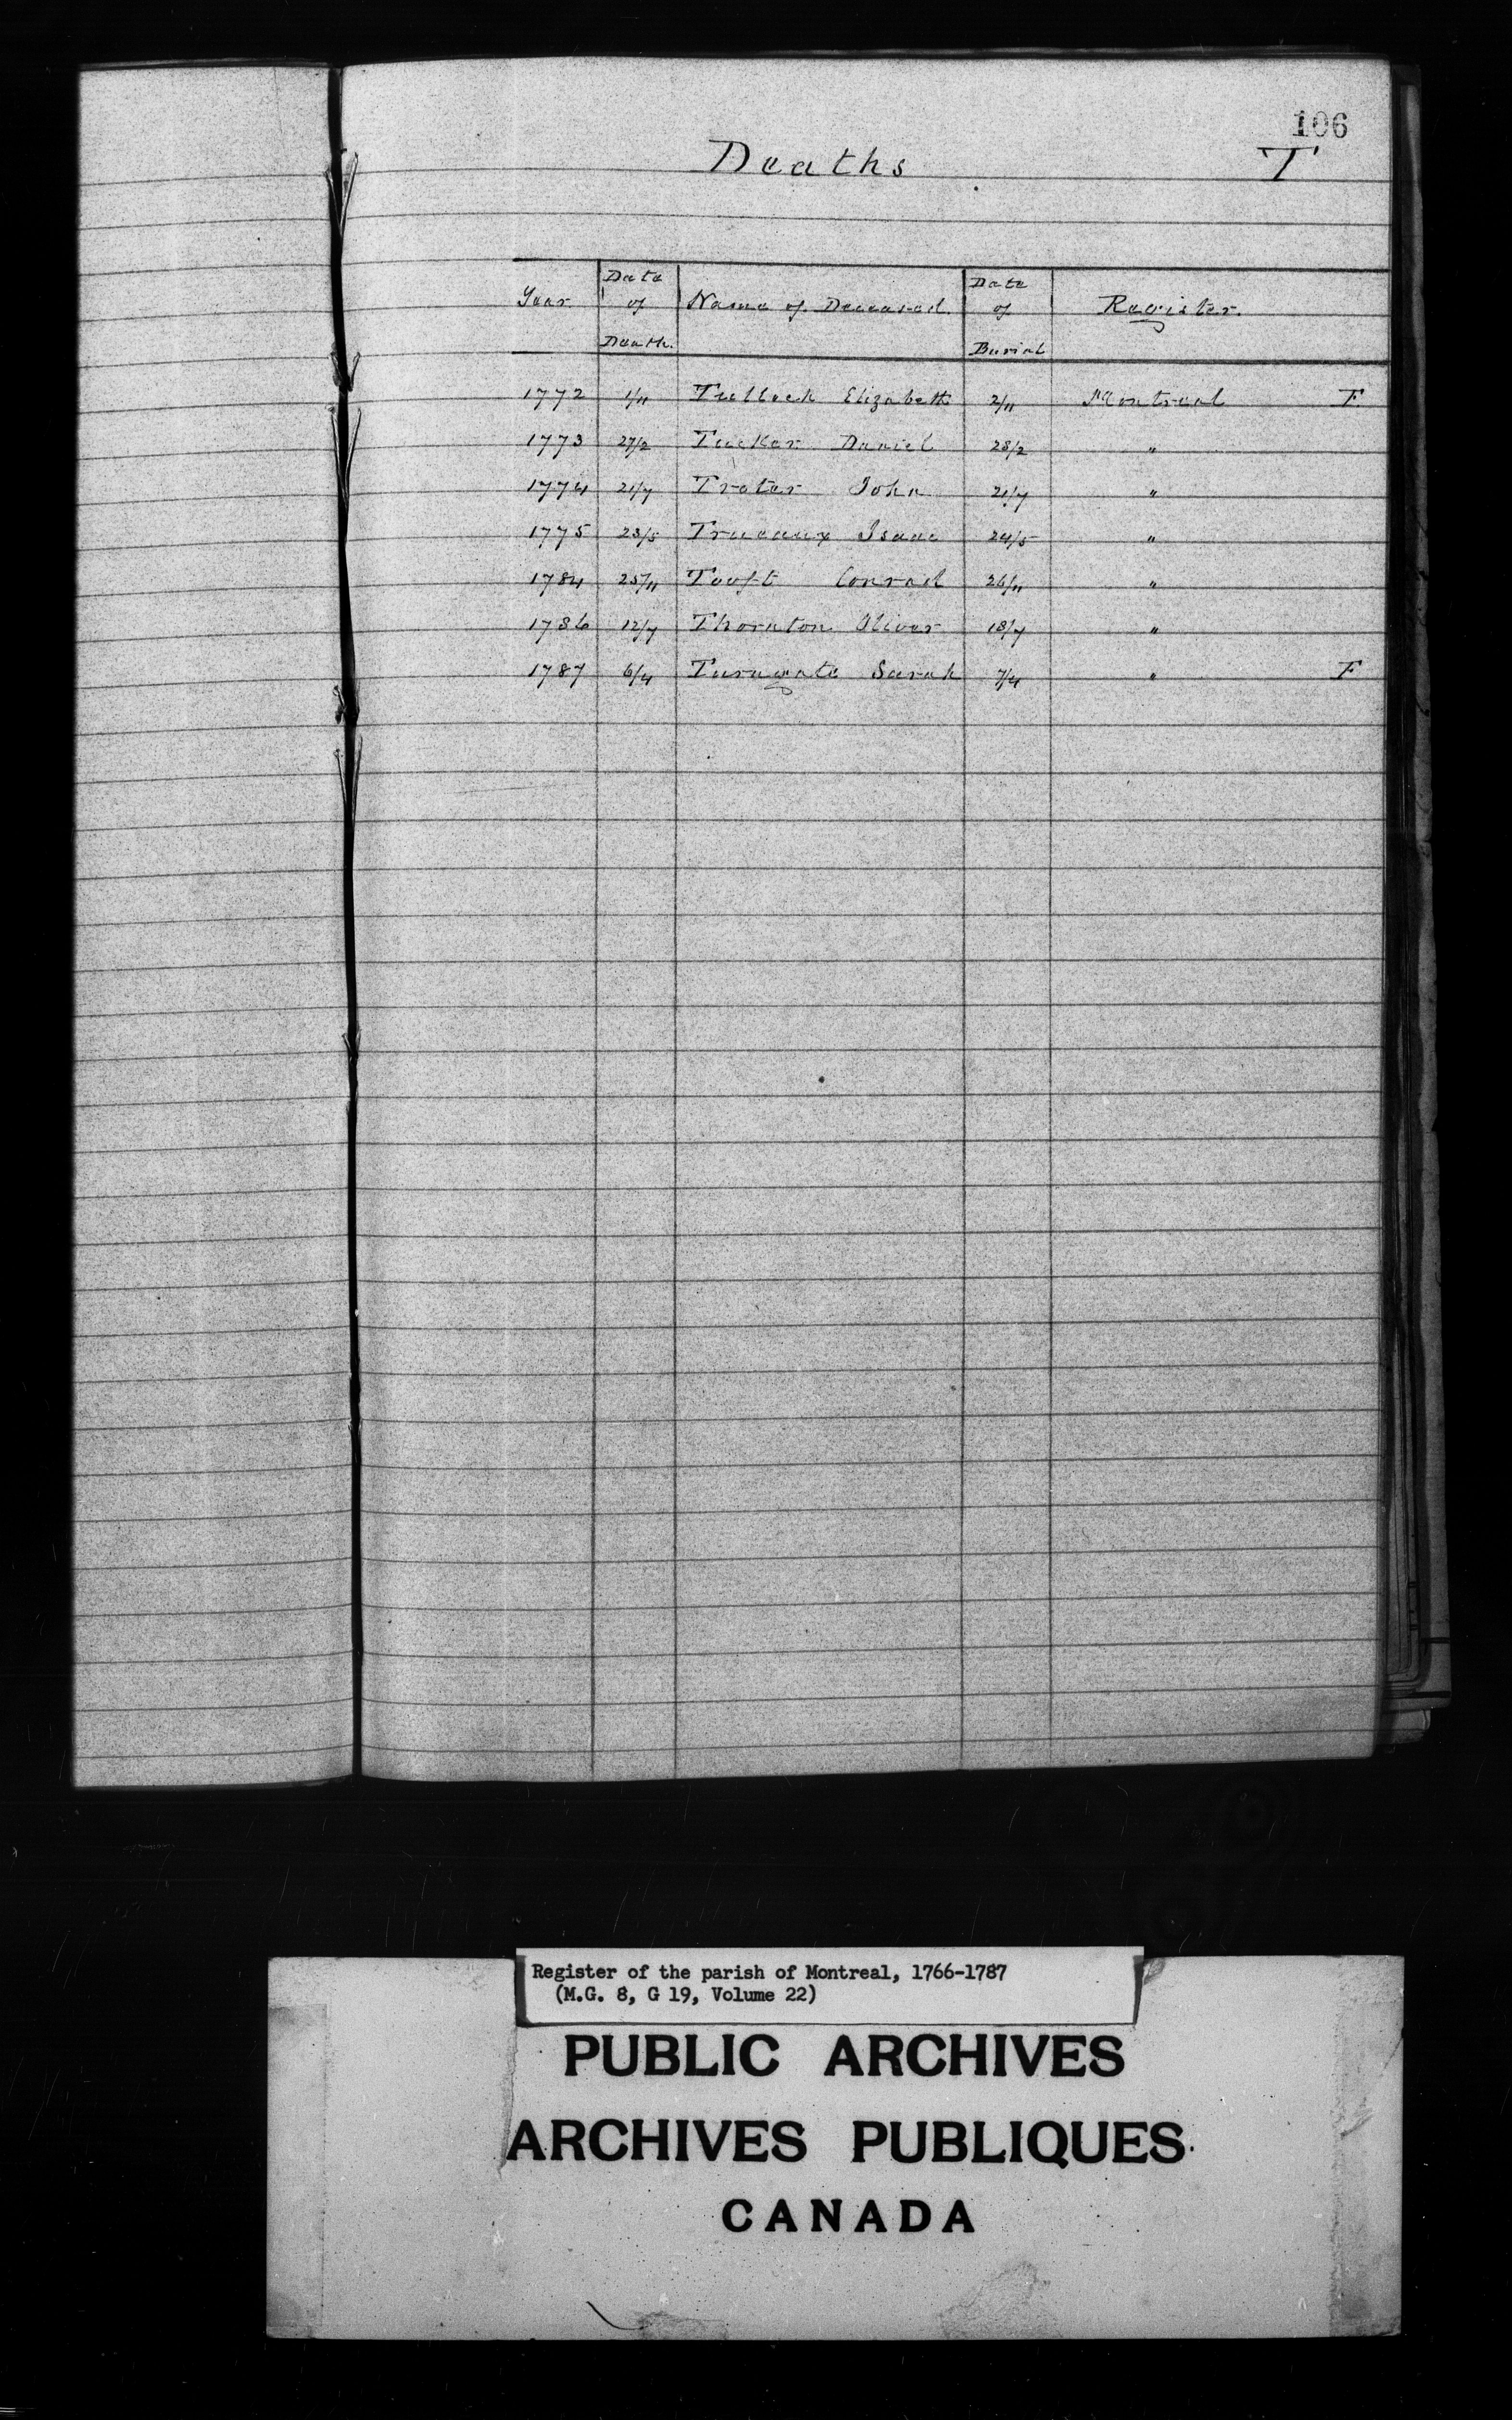 106
Deaths T
Year Date of Death. Name of Deceased. Date of Burial Register.
1772 1/11 Tulloch Elizabeth 2/11 Montreal F.
1773 27/2 Tucker Daniel 28/2 "
1774 21/7 Troter John 21/7 "
1775 23/5 Isaac 24/5 "
1784 25/11 Conrad 26/11 "
1786 12/7 Thornton Oliver 18/7 "
1787 6/4 Sarah 7/4 " F
Register of the parish of Montreal, 1766-1787
(M.G. 8, G 19, Volume 22)
PUBLIC ARCHIVES
ARCHIVES PUBLIQUES
CANADA